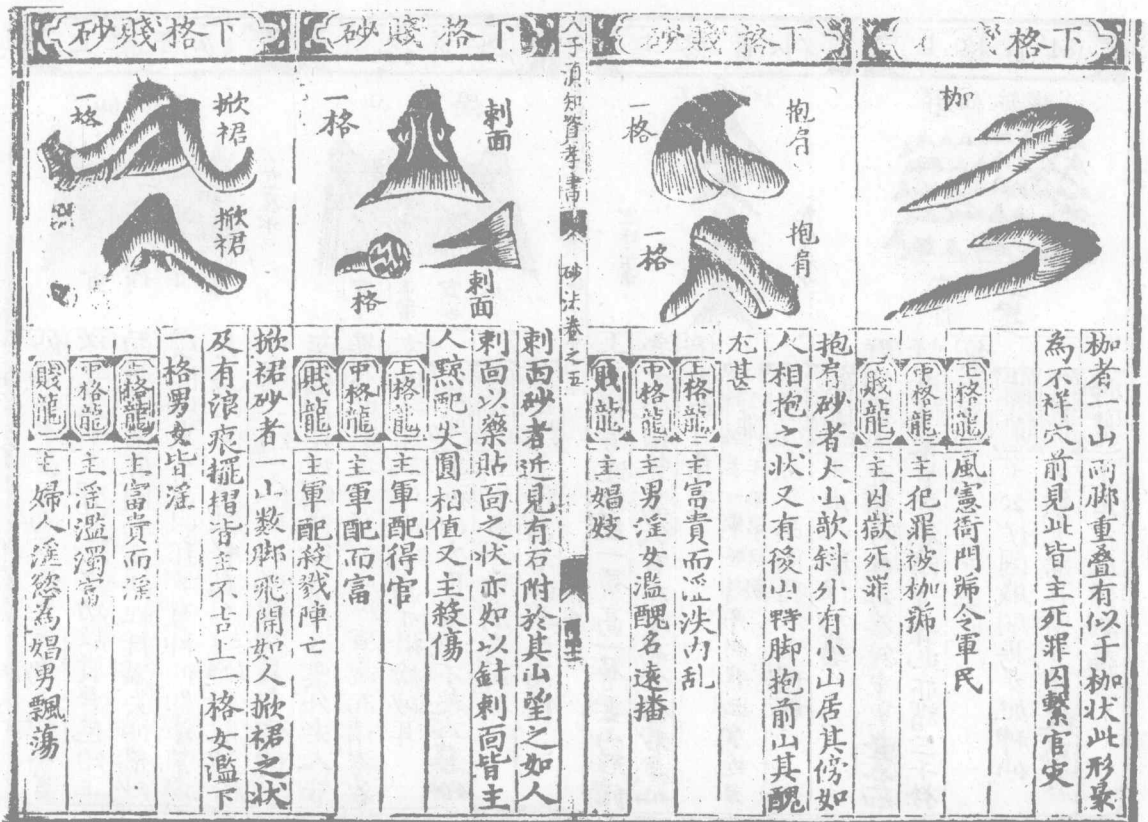 下格
枷
枷者一山兩脚重叠有似于枷狀此形最
為不祥穴前見此皆主死罪囚繫官災
上格龍 風憲衙門號令軍民
中格龍 主犯罪被枷號
賤龍 主囚獄死罪
下格賤砂
抱肩
一格
抱肩
一格
抱肩砂者大山欹斜外有小山居其傍如
人相抱之狀又有後山轉脚抱前山其醜
尤甚
上格龍 主富貴而淫泆內乱
中格龍 主男淫女濫醜名遠播
賤龍 主娼妓
人子須知資孝書 砂法卷之五
下格賤砂
刺面
一格
刺面
一格
刺面砂者近見有石附於其山望之如人
刺面以藥貼面之狀亦如以針刺面皆主
人黥配尖圓相值又主殺傷
上格龍 主軍配得官
中格龍 主軍配而富
賤龍 主軍配殺戮陣亡
下格賤砂
掀裙
一格
掀裙
掀裙砂者一山數脚飛開如掀裙之狀
及有浪痕擺摺皆是不吉上格女濫下
格男女皆淫
上格龍 主富貴而淫
中格龍 主淫濫濁富
賤龍 主婦人淫慾為娼男飄蕩